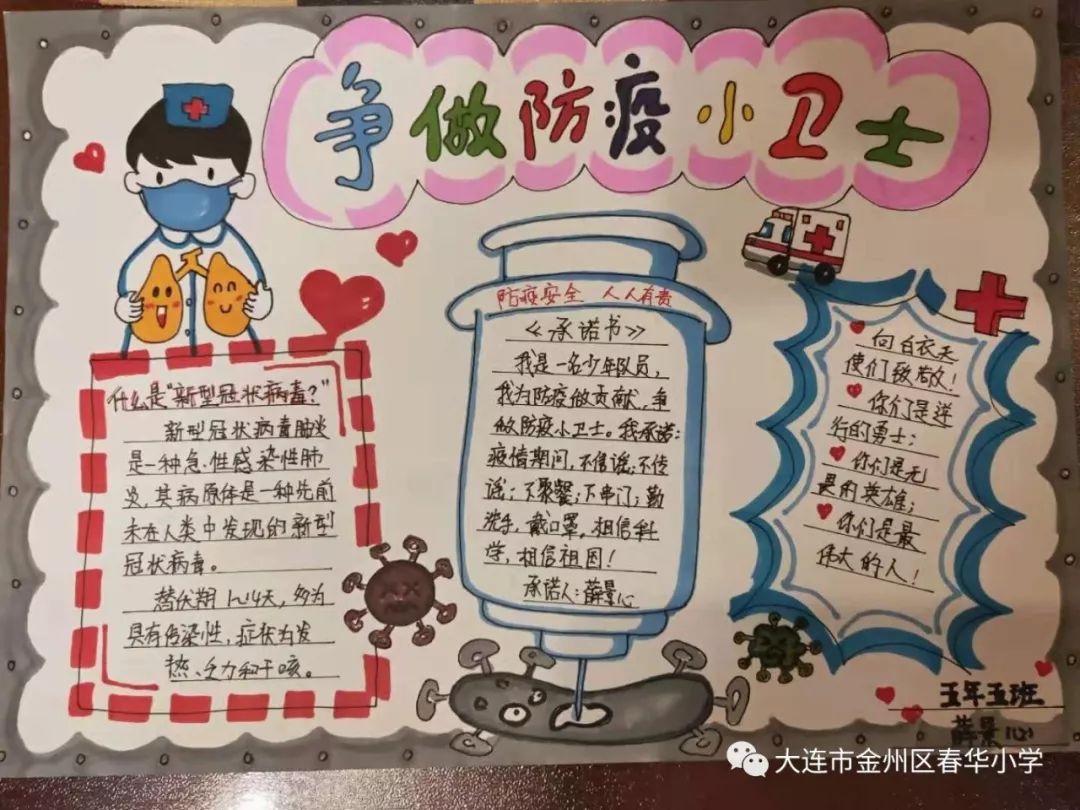 争做防疫小卫士
什么是"新型冠状病毒?"
新型冠状病毒肺炎
是一种急性感染性肺
炎,其病原体是一种先前
未在人类中发现的新型
冠状病毒。
潜伏期1~14天,多为
具有传染性,症状为发
热、乏力和干咳。
防疫安全 人人有责
《承诺书》
我是一名少年队员,
我为防疫做贡献,争
做防疫小卫士。我承诺:
疫情期间,不信谣;不传
谣;不聚餐;不串门;勤
洗手,戴口罩,相信科
学,相信祖国!
承诺人:薛景心
向白衣天
使们致敬!
你们是逆
行的勇士;
你们是无
畏的英雄;
你们是最
伟大的人!
五年五班
薛景心
大连市金州区春华小学